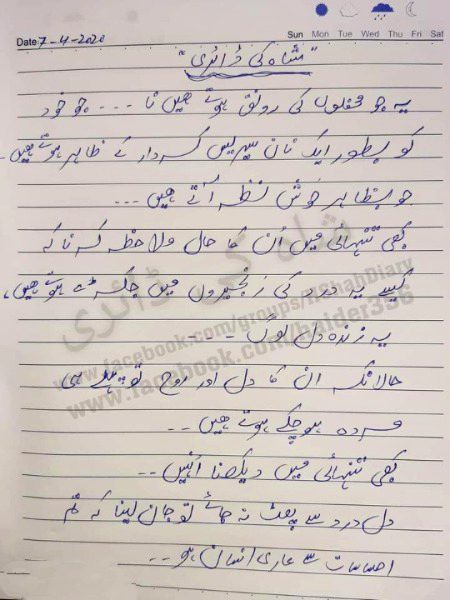 Sun Mon Tue Wed Thu Fri Sat
Date 7-4-2020
"شاہ کی ڈائری"
یہ جو محفلوں کی رونق ہوتے ھیں نا --- جو خود
کو بطور ایک نان سیریس کردار کے ظاہر ہوتے ھیں --
جو بظاہر خوش نظر آتے ھیں ---
کبھی تنہائی میں اُن کا حال ملاحظہ کرنا کہ
کیسے یہ درد کی زنجیروں میں جکڑے ہوتے ھیں،
یہ زندہ دل لوگ ----
حالانکہ ان کا دل اور روح تو پہلے ہی
مردہ ہوچکے ہوتے ھیں --
کبھی تنہائی میں دیکھنا اُنہیں --
دل درد سے پھٹ نہ جائے تو جان لینا کہ تم
احساسات سے عاری انسان ہو --
شاہ کی ڈائری
www.facebook.com/groups/NehabDiary
www.facebook.com/haider336